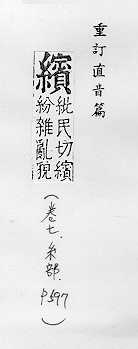 重訂直音篇
繽
紕民切繽
紛雜亂貌
(卷七.糸部.
P.597)